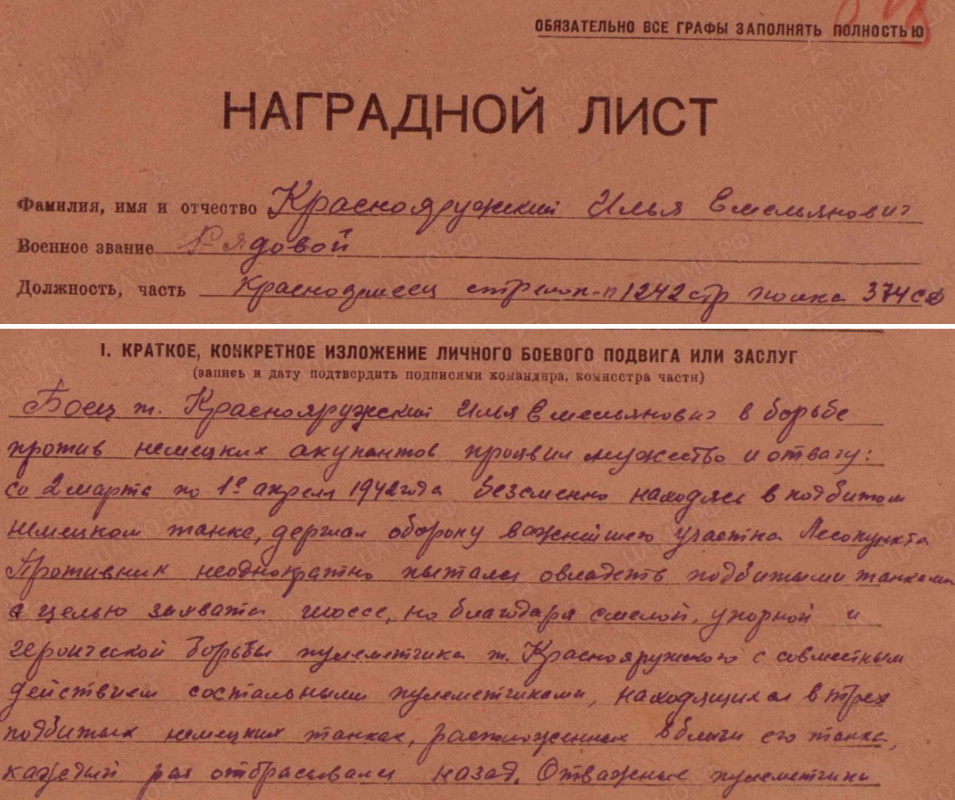 ОБЯЗАТЕЛЬНО ВСЕ ГРАФЫ ЗАПОЛНЯТЬ ПОЛНОСТЬЮ
НАГРАДНОЙ ЛИСТ
Фамилия, имя и отчество Краснояружский Илья Емельянович
Военное звание Рядовой
Должность, часть Красноармеец стрелок 1242 стр полка 374 сд
I. КРАТКОЕ, КОНКРЕТНОЕ ИЗЛОЖЕНИЕ ЛИЧНОГО БОЕВОГО ПОДВИГА ИЛИ ЗАСЛУГ
(запись и дату подтвердить подписями командира, комиссара части)
Боец т. Краснояружский Илья Емельянович в борьбе
против немецких акупантов проявил мужество и отвагу:
со 2 марта по 1е апреля 1942 года безсменно находясь в подбитом
немецком танке, держал оборону важнейшего участка Лесопункта
Противник неоднократно пытался овладеть подбитыми танками
с целью захвата шоссе, но благодаря смелой, упорной и
героической борьбы пулеметчика т. Краснояружского с совместным
действием состальными пулеметчиками, находящихся в трех
подбитых немецких танках, расположенных вблизи его танка,
каждый раз отбрасывался назад. Отважные пулеметчики